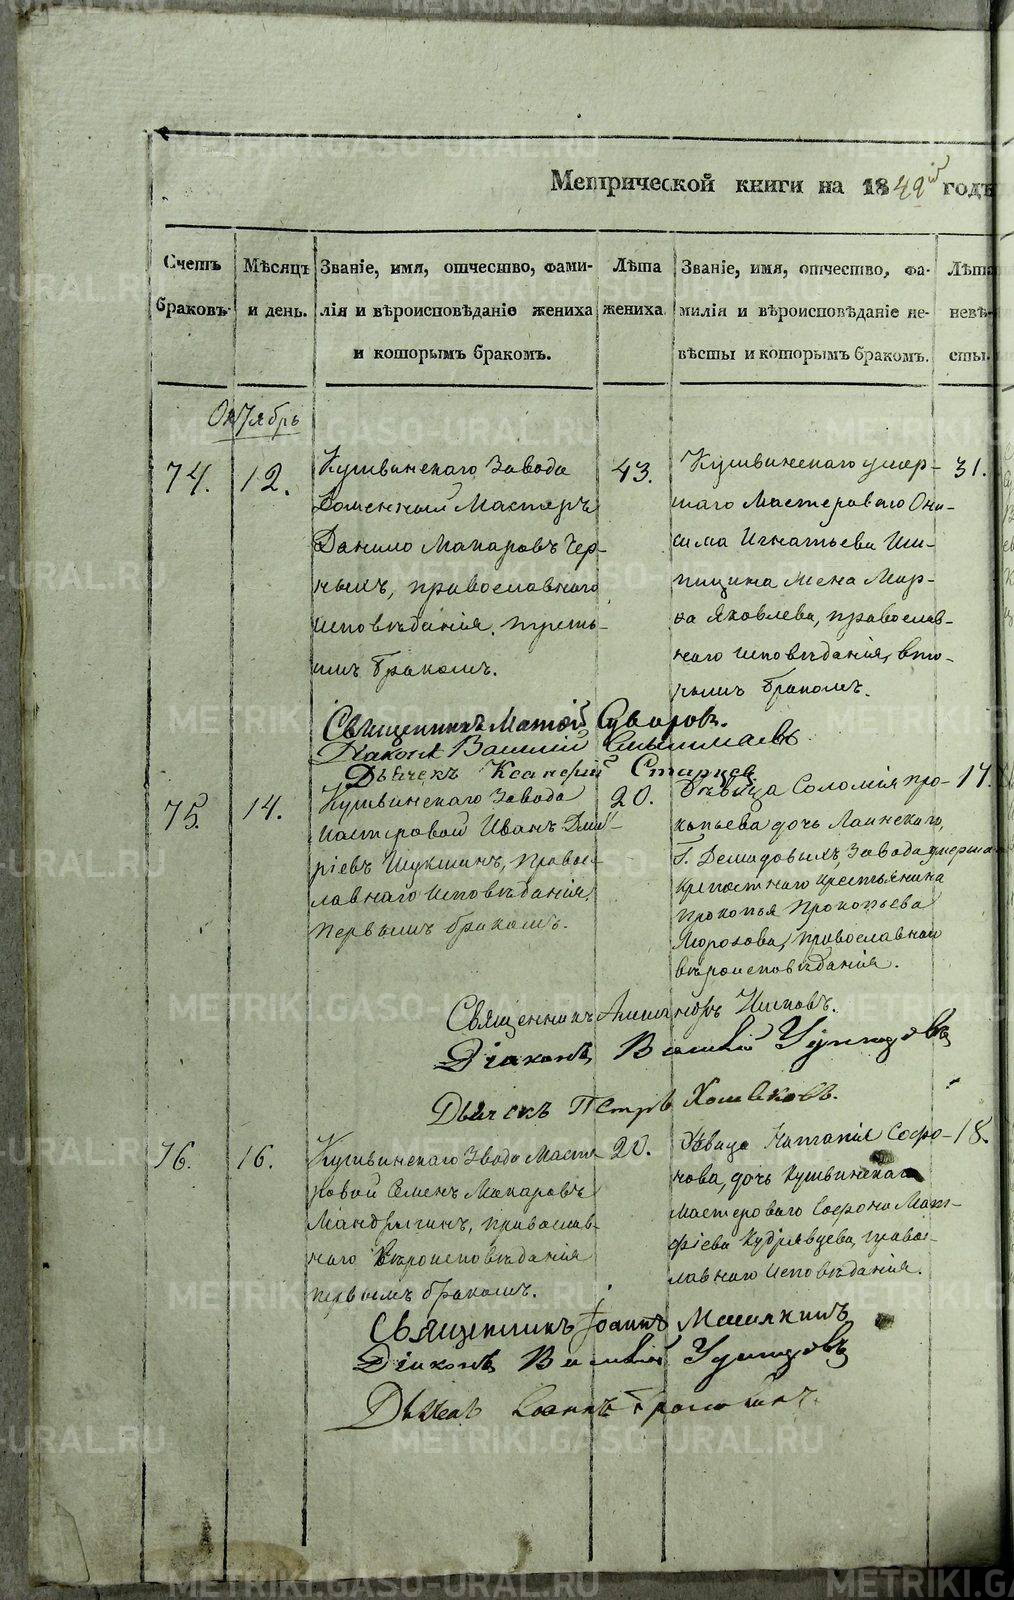 Метрической книги на 1849й годъ
Счетъ браковъ.
Мѣсяцъ и день.
Званіе, имя, отчество, фами-
лія и вѣроисповѣданіе жениха
и которымъ бракомъ.
Лѣта жениха
Званіе, имя, отчество, фа-
милія и вѣроисповѣданіе не-
вѣсты и которымъ бракомъ.
Лѣта невѣ-
сты.
Октябрь
74.
12.
Кушвинскаго Завода
Доменный Мастеръ
Данило Макаровъ Чер-
ныхъ, православнаго
исповѣданія, треть-
имъ бракомъ.
43.
Кушвинскаго умер-
шаго Мастероваго Они-
сима Игнатьева Ши-
пицина жена Мар-
ѳа Яковлева, православ-
наго исповѣданія, вто-
рымъ бракомъ.
31.
Священникъ Матѳій Суворовъ.
Діаконъ Василій
Дьячекъ Ксенофій Старцев
75.
14.
Кушвинскаго Завода
мастеровой Иванъ Дмит-
ріевъ Шукшинъ, право-
славнаго исповѣданія,
первымъ бракомъ.
20.
Дѣвица Соломія Про-
копьева дочь Лаинскаго,
Г. Демидовыхъ, Завода умершаго
крѣпостнаго крестьянина
Прокопья Прокопьева
Морозова, православнаго
вѣроисповѣданія.
17.
Священникъ
Діаконъ Василій Удинцовъ
Дьячекъ Петръ Хомяковъ.
76.
16.
Кушвинскаго Звода Масте
ровой Семенъ Макаровъ
Мандрыгинъ, православ-
наго вѣроисповѣданія
первымъ бракомъ.
20.
Дѣвица Наталія Софро-
нова, дочь Кушвинскаго
мастероваго Софрона Мат-
фіева Кудрявцева, право-
славнаго исповѣданія.
18.
Священникъ Іоаннъ
Діаконъ Василій Удинцовъ
Дьячекъ Іоаннъ
METRIKI.GASO-URAL.RU